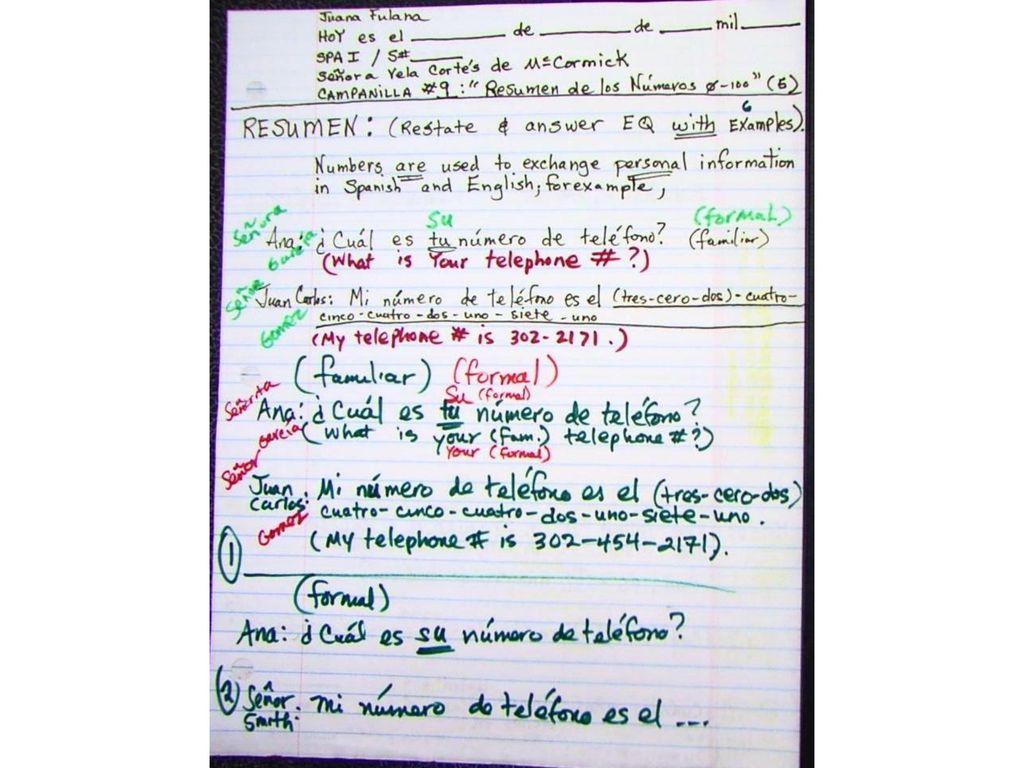 Juana Fulana
HOY es el ________ de ________ de ____ mil ____
SPA I / S#____
Señora Vela Cortés de McCormick
CAMPANILLA #9: "Resumen de los Números 0-100" (5)
6
RESUMEN: (Restate & answer EQ with Examples).
Numbers are used to exchange personal information
in Spanish and English; for example,
Señora García
Su (formal)
Ana: ¿Cuál es tu número de teléfono? (familiar)
(What is Your telephone #?)
Señor Gomez
Juan Carlos: Mi número de teléfono es el (tres-cero-dos)-cuatro-
cinco-cuatro-dos-uno-siete-uno
(My telephone # is 302-2171.)
(familiar) (formal)
Su (formal)
Señorita García
Ana: ¿Cuál es tu número de teléfono?
(What is your (fam.) telephone #?)
Your (formal)
Señor Gomez
Juan Carlos: Mi número de teléfono es el (tres-cero-dos)
cuatro-cinco-cuatro-dos-uno-siete-uno.
(My telephone # is 302-454-2171).
1
(formal)
Ana: ¿Cuál es su número de teléfono?
2 Señor Smith: Mi número de teléfono es el ...